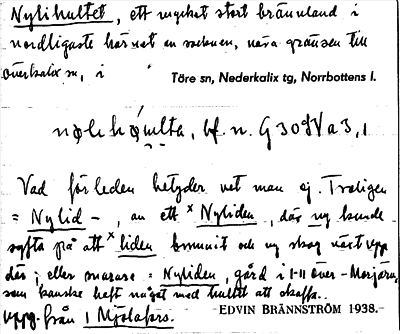 Nylihultet, ett mycket stort brännland i
nordligaste hörnet av socknen, nära gränsen till
överkalix sn, i Töre sn, Nederkalix tg, Norrbottens l.
bf. n. G 30 g V a 3, 1
Vad förleden betyder vet man ej. Troligen
= Nylid-, av ett ˣNyliden, där ny kunde
syfta på att ˣliden brunnit och ny skog växt upp
där; eller snarare = Nyliden, gård i 1-11 över-Morjärv,
som kanske haft något med hultet att skaffa.
Uppg. från 1 Mjölafors.
EDVIN BRÄNNSTRÖM 1938.-